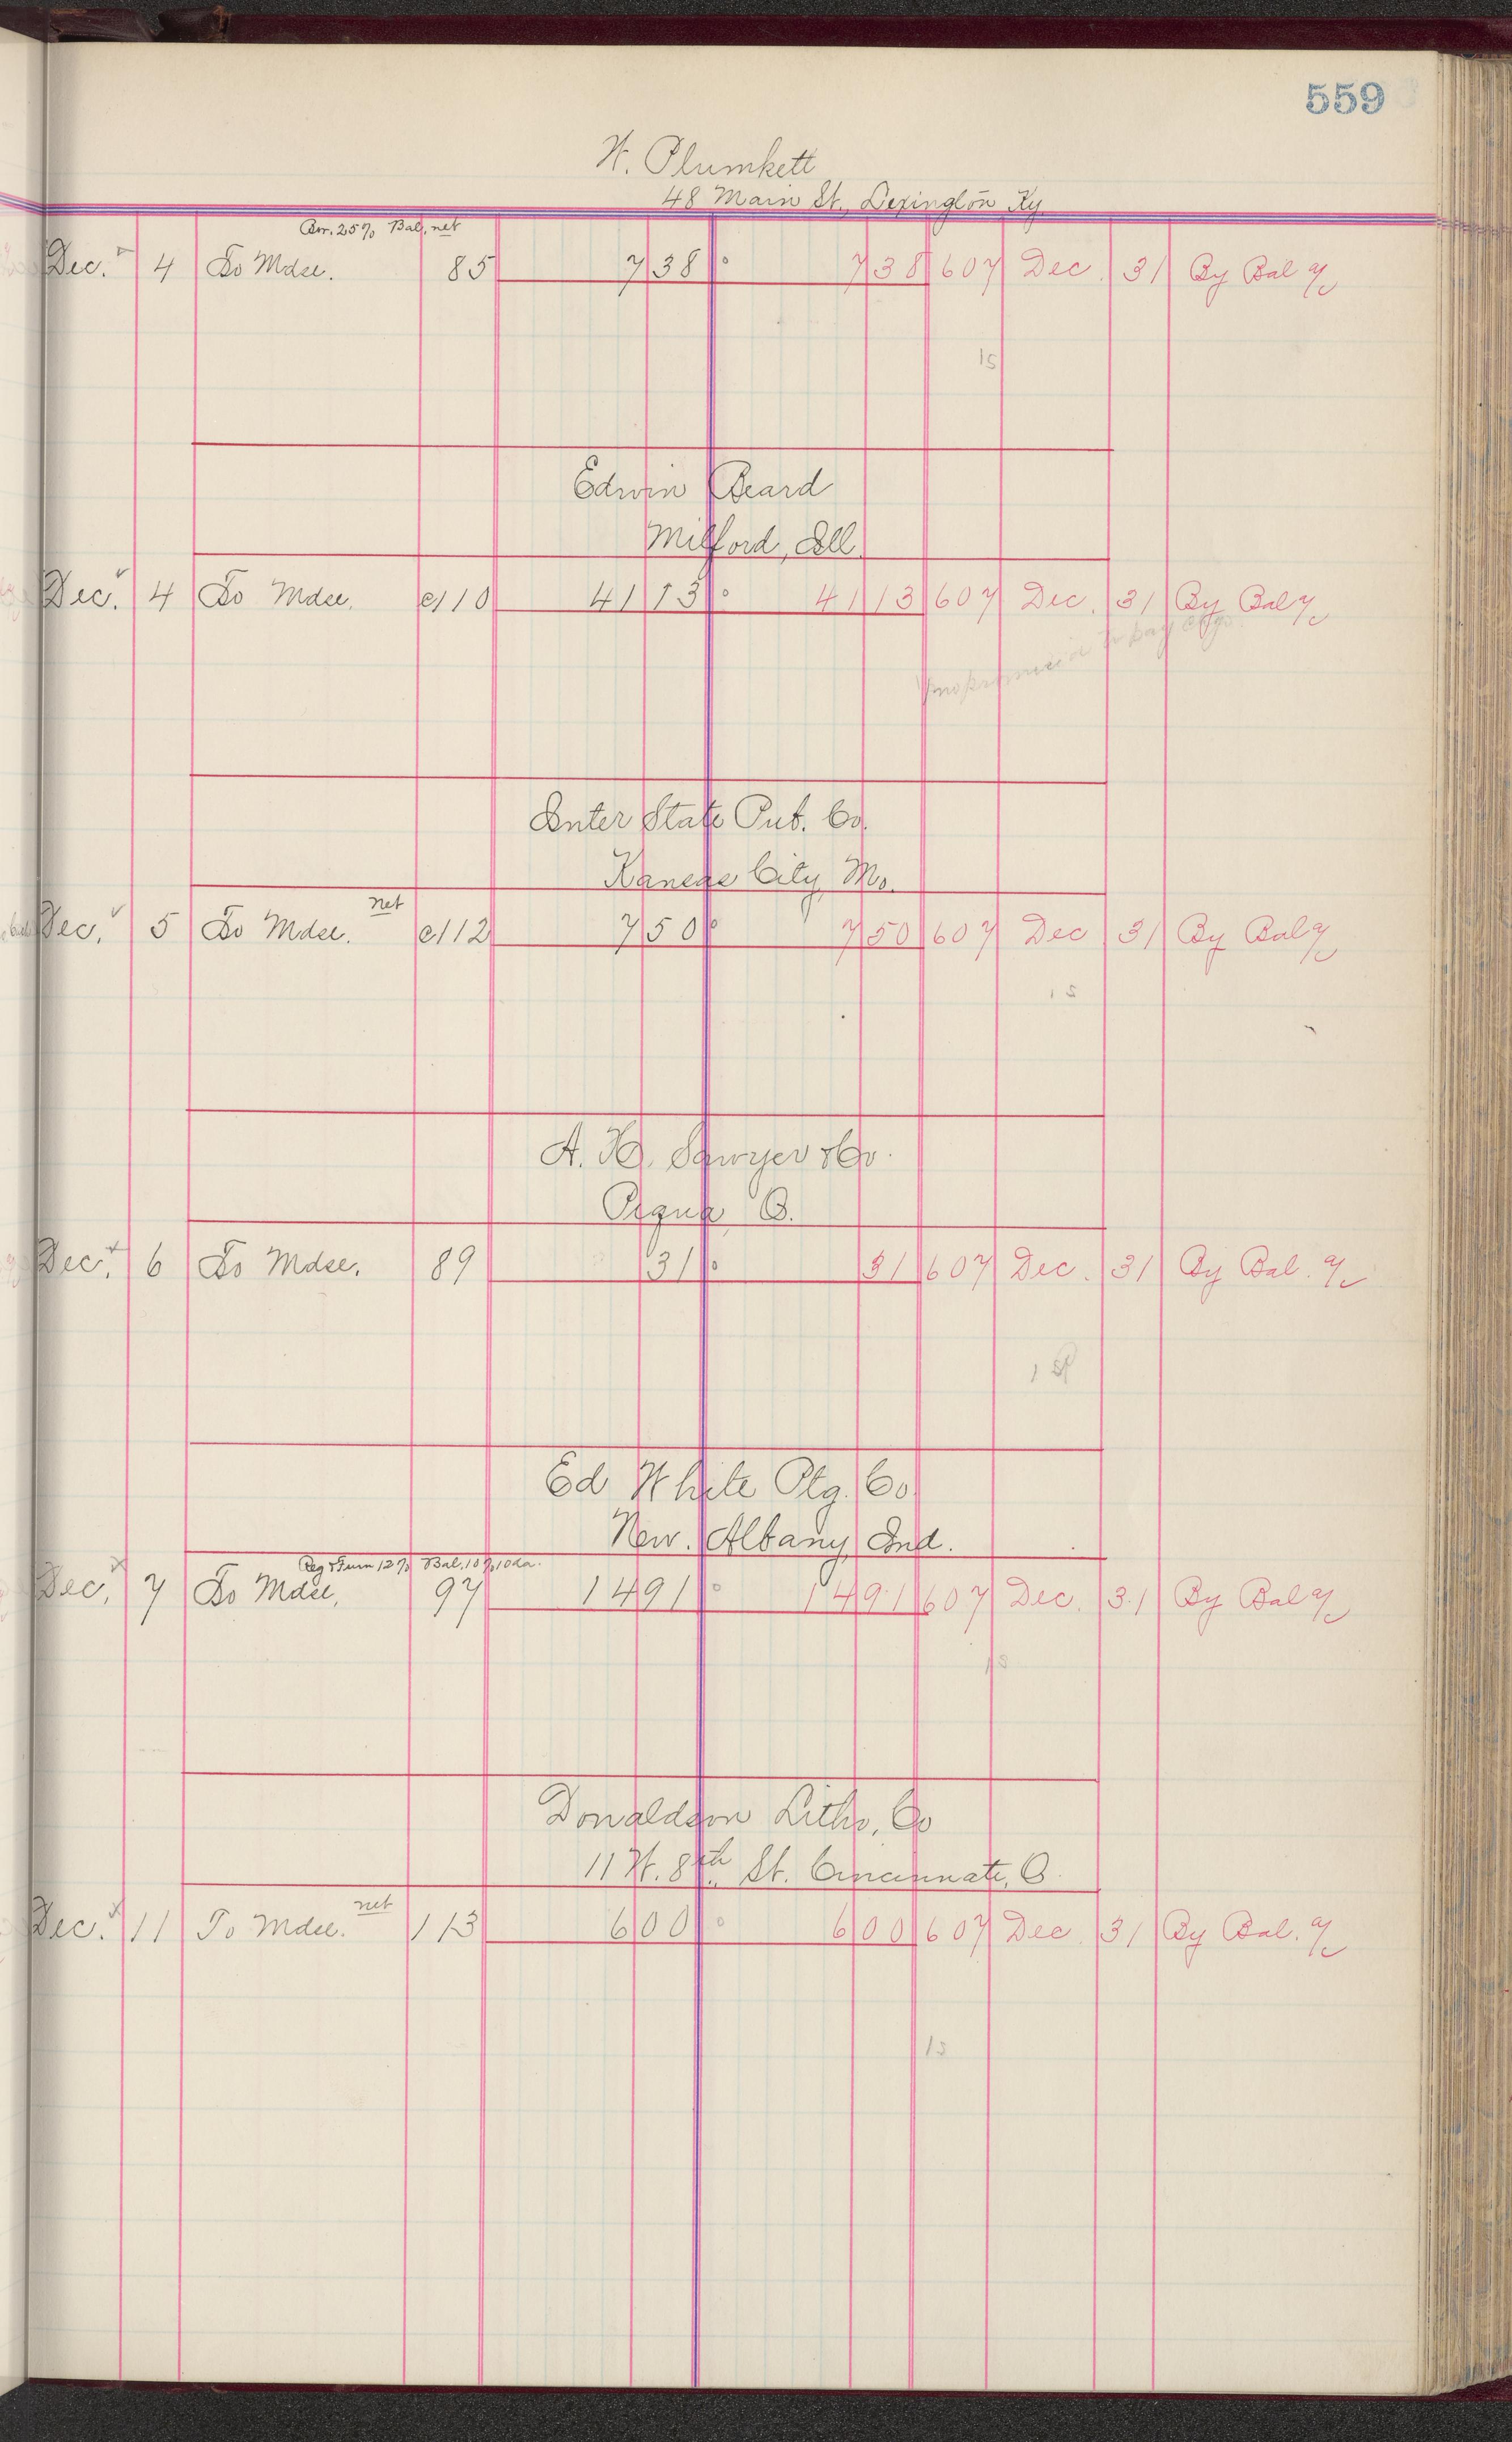 559
W. Plumkett
48 Main St., Lexington Ky
25% Bal. net
Dec. 4 To Mdse. 85 7 38 7 38 607 Dec. 31 By Bal a/c
15
Edwin Beard
Milford, Ill.
Dec. 4 To Mdse. c110 41 13 41 13 607 Dec. 31 By Bal a/c
promised to pay
Inter State Pub. Co.
Kansas City, Mo.
net
Dec. 5 To Mdse. c112 7 50 7 50 607 Dec 31 By Bal a/c
15
A. H. Sawyer & Co.
Piqua, O.
Dec. 6 To Mdse. 89 31 31 607 Dec. 31 By Bal. a/c
Ed White Ptg. Co.
New. Albany, Ind.
Reg & Furn 12% Bal. 10% 10 da.
Dec. 7 To Mdse. 97 14 91 14 91 607 Dec. 31 By Bal a/c
Donaldson Litho. Co
11 W. 8th St. Cincinnati, O.
net
Dec. 11 To Mdse. 113 6 00 6 00 607 Dec. 31 By Bal. a/c
13